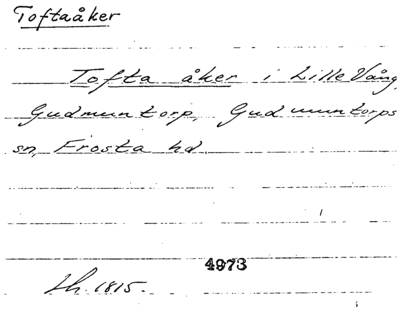 Toftaåker
Tofta åker i Lille Vång,
Gudmuntorp, Gudmuntorps
sn, Frosta hd
4973
Lh. 1815.